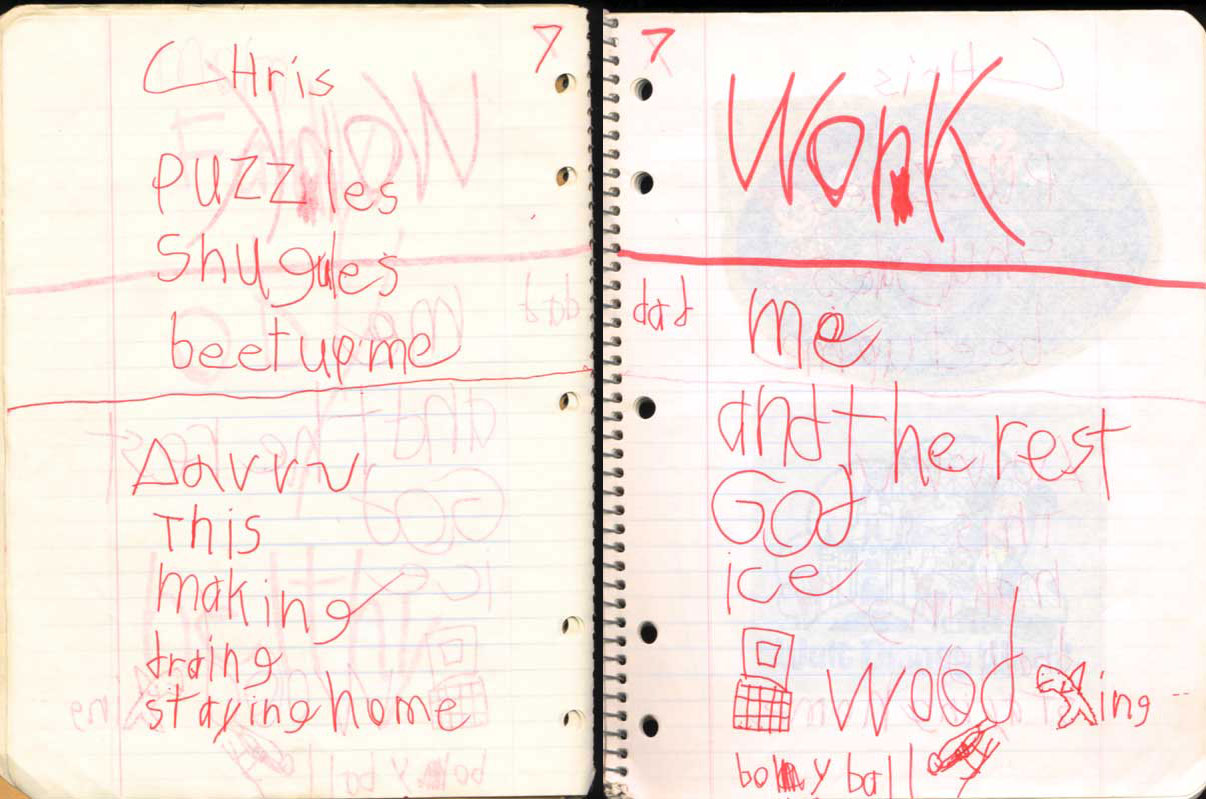 7
CHris
PUZZles
Shugules
beet up me
Davvv
This
making
draing
staying home
7
WonK
dad
me
and the rest
God
ice
Wood
ing
ball